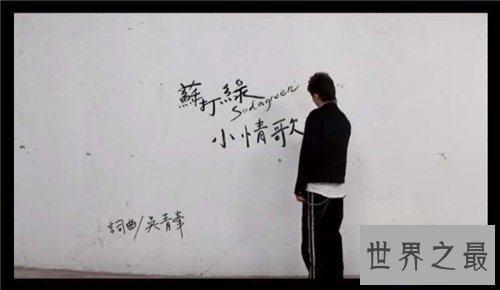 蘇打綠
Sodagreen
小情歌
詞曲/吳青峯
世界之最